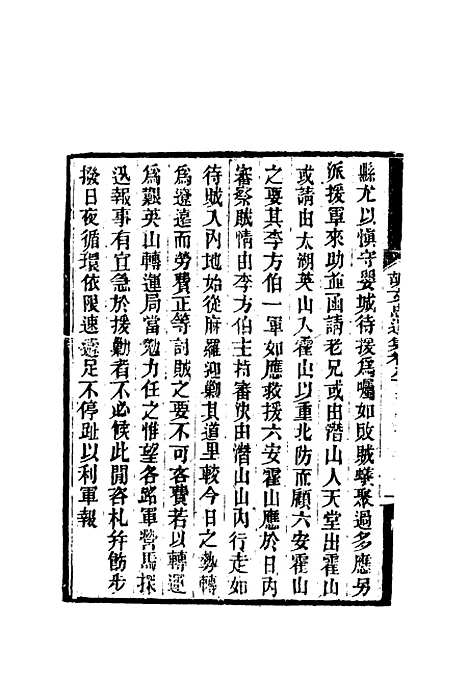 縣尤以愼守嬰城待援爲囑如敗賊攀聚過多應另
派援軍來助並函請老兄或由潛山入天堂出霍山
或請由太湖英山入霍山以重北防而顧六安霍山
之要其李方伯一軍如應救援六安霍山應於日內
審察賊情由李方伯主持審決由潛山山內行走如
待賊入內地始從麻羅迎勦其道里較今日之勢轉
爲遼遠而勞費正等討賊之要不可吝費若以轉運
爲艱英山轉運局當勉力任之惟望各路軍營馬探
迅報事有宜急於援勦者不必候此間咨札幷飭步
撥日夜循環依限速遞足不停趾以利軍報